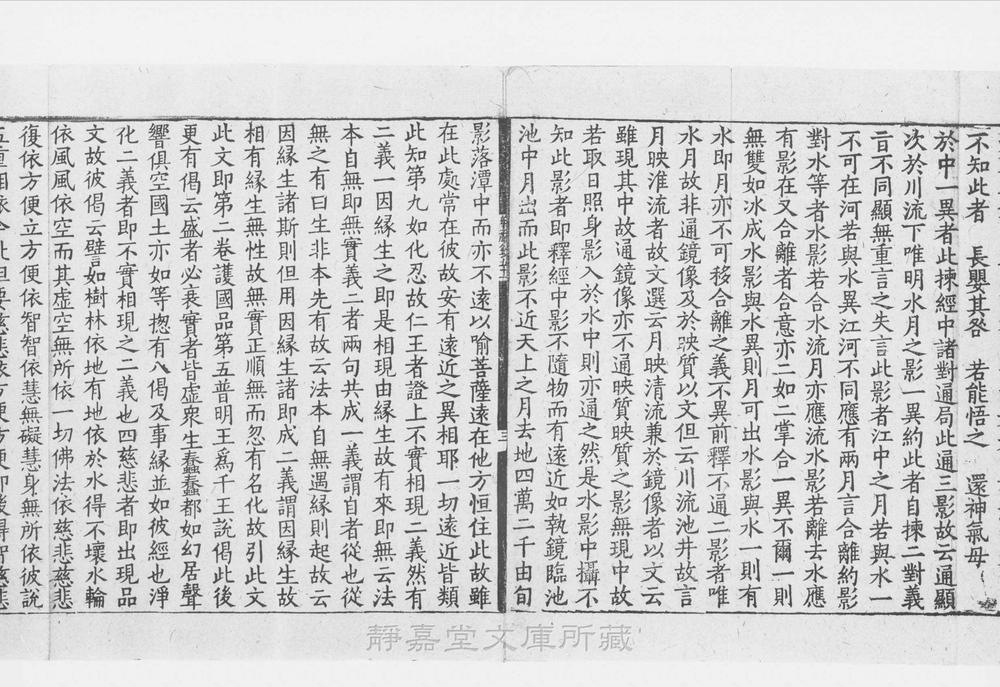 不知此者　長嬰其咎　若能悟之　還神氣母
於中一異者此揀經中諸對通局此通三影故云通顯
次於川流下唯明水月之影一異約此者自揀二對義
言不同顯無重言之失言此影者江中之月若與水一
不可在河若與水異江河不同應有兩月言合離約影
對水等者水影若合水流月亦應流水影若離去水應
有影在又合離者合意亦二如二掌合一異不爾一則
無雙如冰成水影與水異則月可出水影與水一則有
水即月亦不可移合離之義不異前釋不通二影者唯
水月故非通鏡像及於映質以文但云川流池井故言
月映淮流者故文選云月映清流兼於鏡像者以文云
雖現其中故通鏡像亦不通映質映質之影無現中故
若取日照身影入於水中則亦通之然是水影中攝不
知此影者即釋經中影不隨物而有遠近如執鏡臨池
池中月出而此影不近天上之月去地四萬二千由旬
影落潭中而亦不遠以喻菩薩遠在他方恒住此故雖
在此處常在彼故安有遠近之異相耶一切遠近皆類
此知第九如化忍故仁王者證上不實相現二義然有
二義一因緣生之即是相現由緣生故有來即無云法
本自無即無實義二者兩句共成一義謂自者從也從
無之有曰生非本先有故云法本自無遇緣則起故云
因緣生諸斯則但用因緣生諸即成二義謂因緣生故
相有緣生無性故無實正順無而忽有名化故引此文
此文即第二卷護國品第五普明王爲千王說偈此後
更有偈云盛者必衰實者皆虛衆生蠢蠢都如幻居聲
響俱空國土亦如等揔有八偈及事緣並如彼經也淨
化二義者即不實相現之二義也四慈悲者即出現品
文故彼偈云譬如樹林依地有地依於水得不壞水輪
依風風依空而其虛空無所依一切佛法依慈悲慈悲
復依方便立方便依智智依慧無礙慧身無所依彼說
靜嘉堂文庫所藏